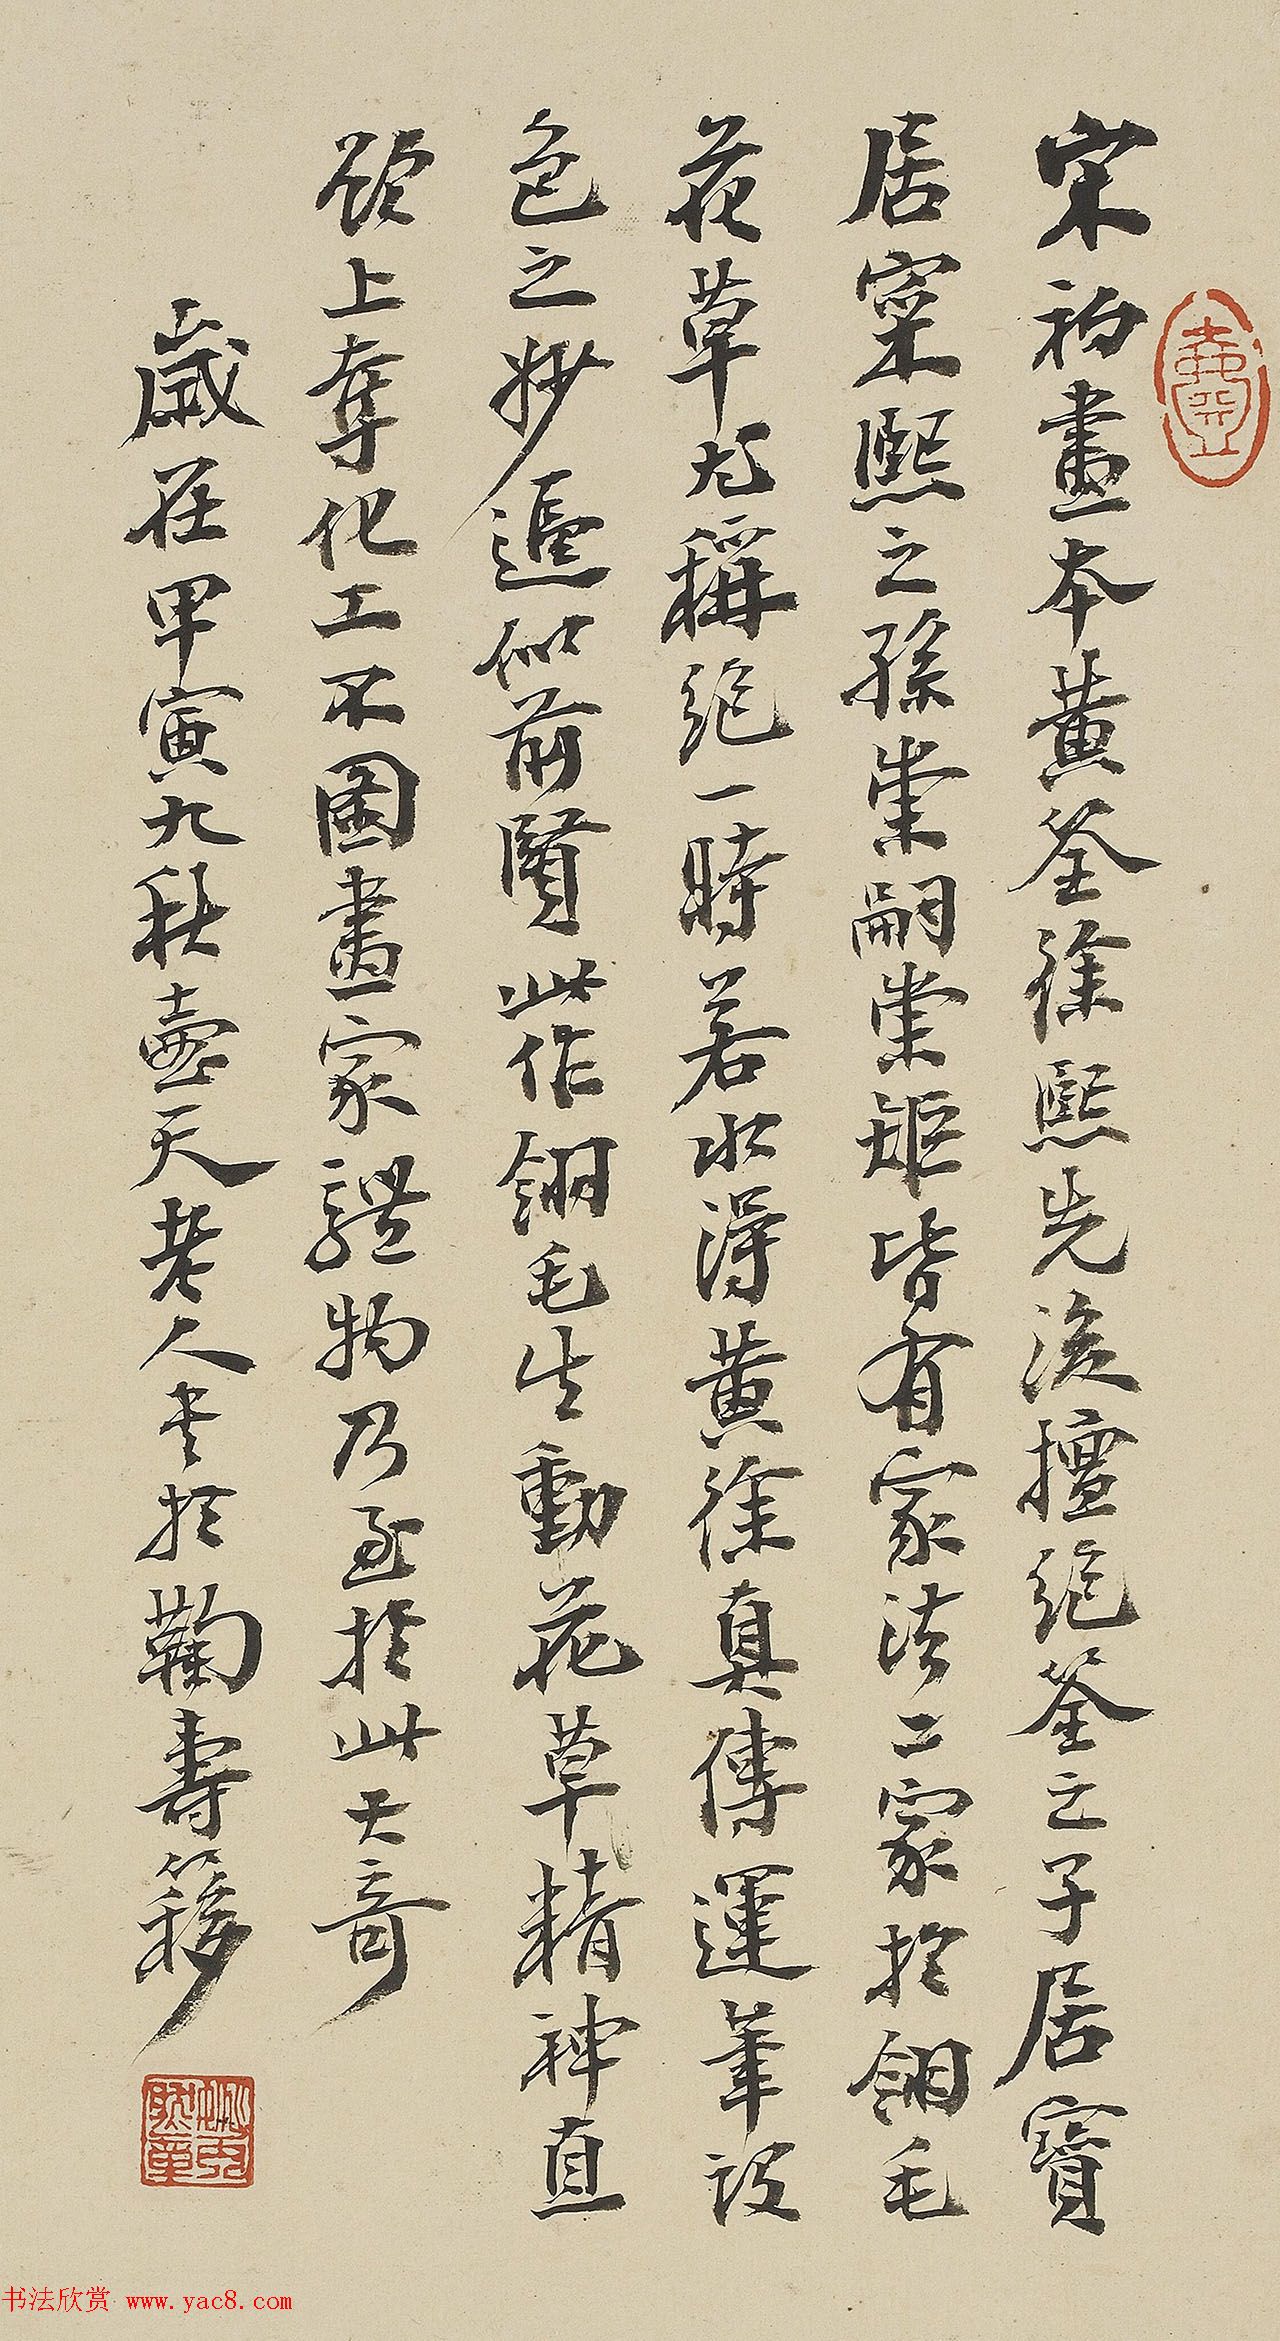 宋初畫本黃筌徐熙先後擅絕筌之子居寶
居寀熙之孫崇嗣崇矩皆有家法二家於翎毛
花草尤稱絕一時若水得黃徐真傳運筆設
色之妙逼似前賢此作翎毛生動花草精神直
欲上奪化工不圖畫家體物乃至於此大奇
歲在甲寅九秋壺天老人書於鞠壽簃
书法欣赏 www.yac8.com